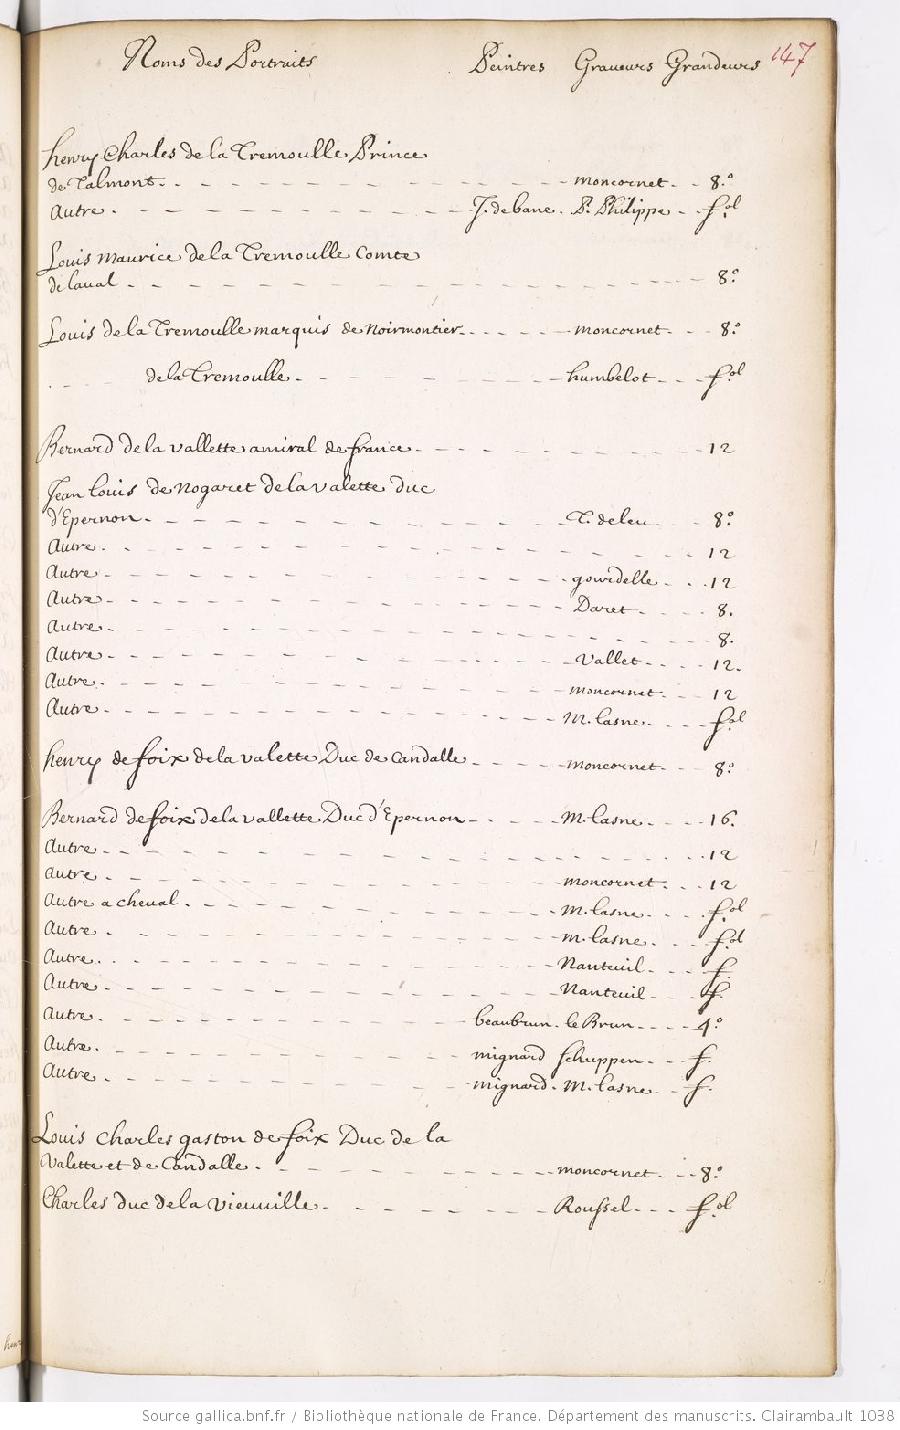 Noms des Portraits Peintres Graveurs Grandeurs 147
henry Charles de la Tremoulle Prince
de Talmont. moncornet. 8.º
Autre. J. de bane. P. Philippe f.ol
Louis maurice de la Tremoulle Comte
de laual 8.º
Louis de la Tremoulle marquis de Noirmontier. moncornet. 8.º
de la Tremoulle. humbelot f.ol
Bernard de la vallette amiral de france. 12
Jean louis de Nogaret de la valette duc
d'Epernon. T. de leu 8.º
Autre. 12
Autre. gourdelle. 12
Autre. Daret. 8.
Autre. 8.
Autre. Vallet. 12.
Autre. moncornet. 12
Autre. M. lasne. f.ol
henry de foix de la valette Duc de Candalle moncornet. 8.º
Bernard de foix de la vallette Duc d'Epernon M. lasne. 16.
Autre. 12
Autre. moncornet. 12
Autre a cheual. M. lasne. f.ol
Autre. m. lasne. f.ol
Autre. Nanteuil. f.
Autre. Nanteuil f.
Autre. beaubrun. le Brun. 4.º
Autre. mignard Schuppen. f.
Autre. mignard. M. lasne. f.
Louis charles gaston de foix Duc de la
Valette et de Candalle. moncornet 8.º
Charles duc de la vieuuille. Roussel. f.ol
Source gallica.bnf.fr / Bibliothèque nationale de France. Département des manuscrits. Clairambault 1038